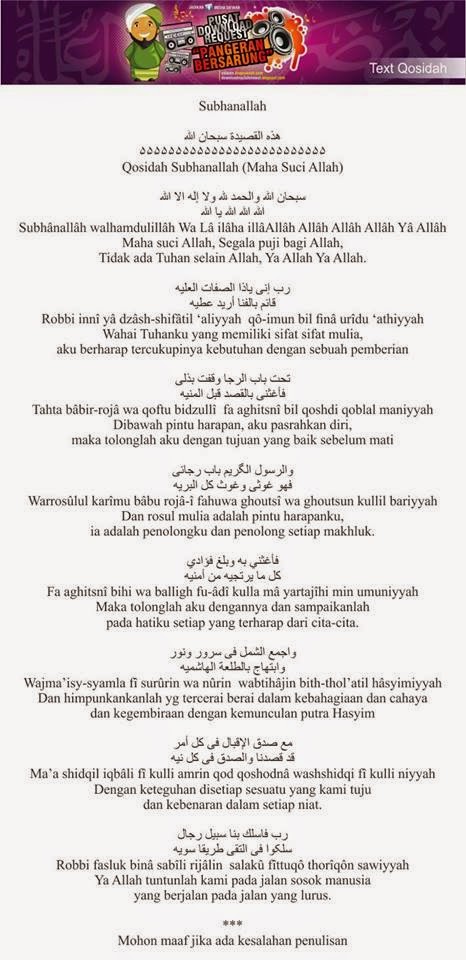 PUSAT
DOWNLOAD
REQUEST
"PANGERAN
BERSARUNG"
Text Qosidah
Subhanallah
هذه القصيدة سبحان الله
Qosidah Subhanallah (Maha Suci Allah)
سبحان الله والحمد لله ولا إله الا الله
الله الله الله يا الله
Subhânallâh walhamdulillâh Wa Lâ ilâha illâAllâh Allâh Allâh Allâh Yâ Allâh
Maha suci Allah, Segala puji bagi Allah,
Tidak ada Tuhan selain Allah, Ya Allah Ya Allah.
رب إنى ياذا الصفات العليه
قائم بالفنا أريد عطيه
Robbi innî yâ dzâsh-shifâtil ‘aliyyah qô-imun bil finâ urîdu ‘athiyyah
Wahai Tuhanku yang memiliki sifat sifat mulia,
aku berharap tercukupinya kebutuhan dengan sebuah pemberian
تحت باب الرجا وقفت بذلى
فأغثنى بالقصد قبل المنيه
Tahta bâbir-rojâ wa qoftu bidzullî fa aghitsnî bil qoshdi qoblal maniyyah
Dibawah pintu harapan, aku pasrahkan diri,
maka tolonglah aku dengan tujuan yang baik sebelum mati
والرسول الگريم باب رجائى
فهو غوثى وغوث كل البريه
Warrosûlul karîmu bâbu rojâ-î fahuwa ghoutsî wa ghoutsun kullil bariyyah
Dan rosul mulia adalah pintu harapanku,
ia adalah penolongku dan penolong setiap makhluk.
فأغثني به وبلغ فؤادي
كل ما يرتجيه من أمنيه
Fa aghitsnî bihi wa balligh fu-âdî kulla mâ yartajîhi min umuniyyah
Maka tolonglah aku dengannya dan sampaikanlah
pada hatiku setiap yang terharap dari cita-cita.
واجمع الشمل فى سرور ونور
وابتهاج بالطلعة الهاشميه
Wajma’isy-syamla fî surûrin wa nûrin wabtihâjin bith-thol’atil hâsyimiyyah
Dan himpunkankanlah yg tercerai berai dalam kebahagiaan dan cahaya
dan kegembiraan dengan kemunculan putra Hasyim
مع صدق الإقبال فى كل أمر
قد قصدنا والصدق فى كل نيه
Ma’a shidqil iqbâli fî kulli amrin qod qoshodnâ washshidqi fî kulli niyyah
Dengan keteguhan disetiap sesuatu yang kami tuju
dan kebenaran dalam setiap niat.
رب فاسلك بنا سبيل رجال
سلكوا فى التقى طريقا سويه
Robbi fasluk binâ sabîli rijâlin salakû fîttuqô thorîqôn sawiyyah
Ya Allah tuntunlah kami pada jalan sosok manusia
yang berjalan pada jalan yang lurus.
***
Mohon maaf jika ada kesalahan penulisan